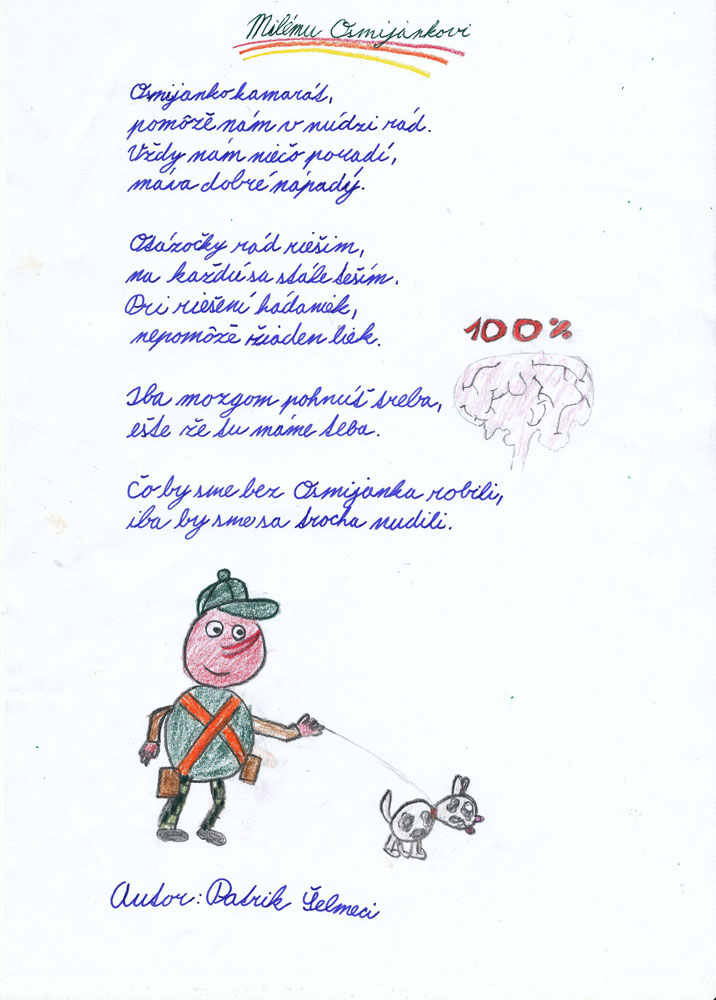 Milému Osmijankovi
Osmijanko kamarát,
pomôže nám v núdzi rád.
Vždy nám niečo poradí,
máva dobré nápady.
Otázočky rád riešim,
na každú sa stále teším.
Pri riešení hádaniek,
nepomôže žiaden liek.
100%
Iba mozgom pohnúť treba,
ešte že tu máme teba.
Čo by sme bez Osmijanka robili,
iba by sme sa trocha nudili.
Autor: Patrik Šelmeci